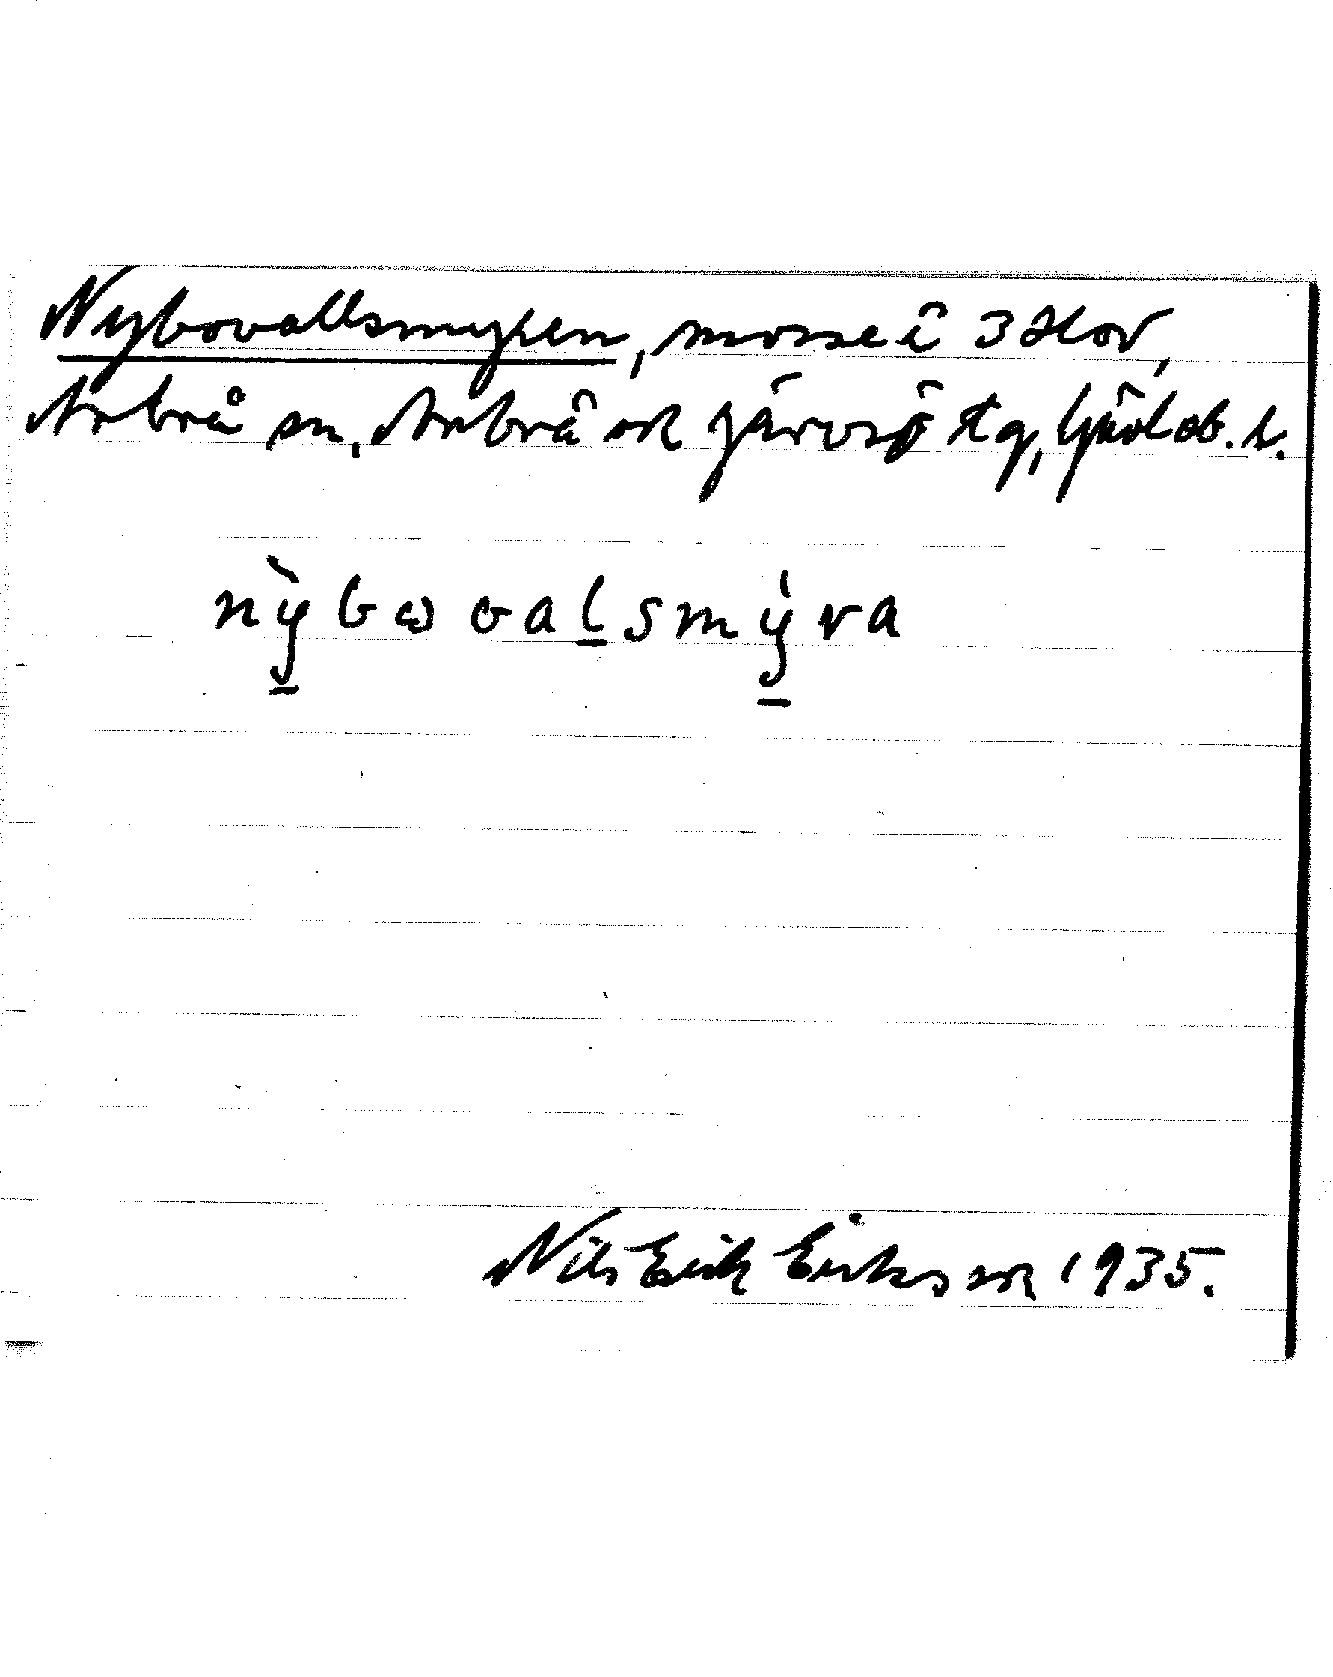 Nybovallsmyren, mosse i 3 Hov,
Arbrå sn, Arbrå ok Järvsö tg, Gävleb. l.
nỳ̠bω val̠smy̠̍ra
Nils Erik Eriksson 1935.